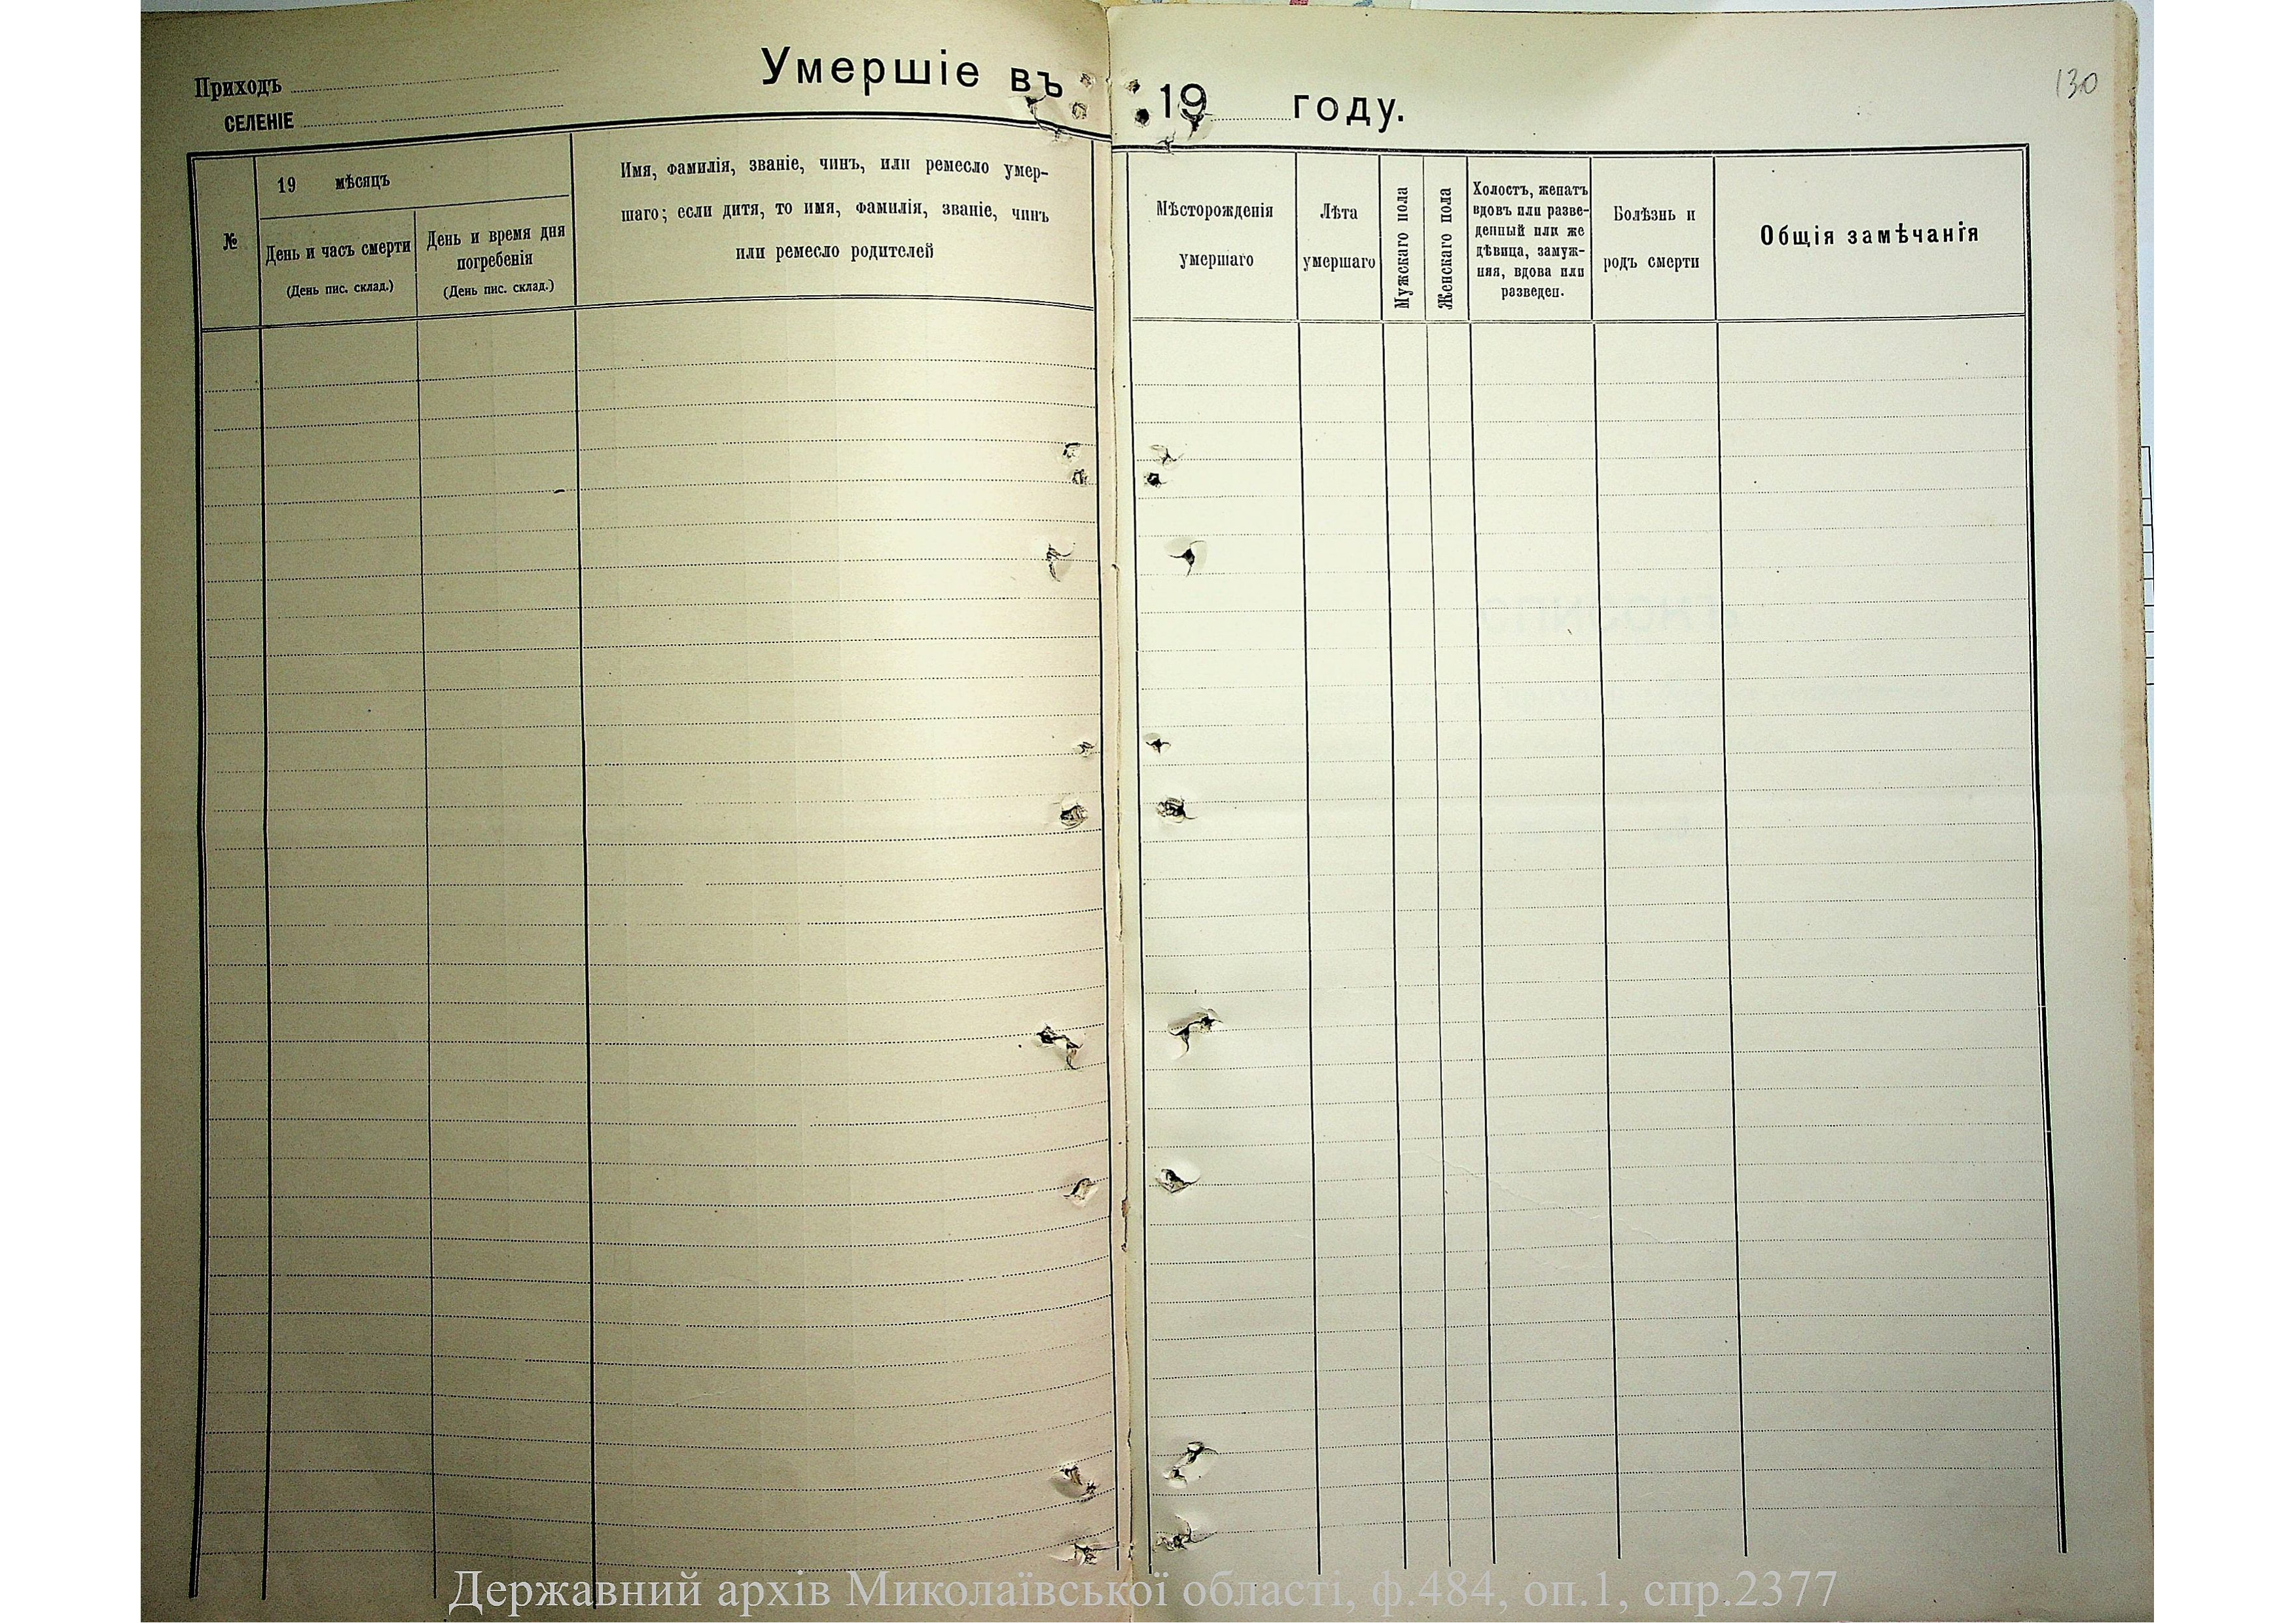 130
Приходъ
СЕЛЕНІЕ
Умершіе въ 19 году.
№
19 мѣсяцъ
День и часъ смерти
(День пис. склад.)
День и время дня
погребенія
(День пис. склад.)
Имя, фамилія, званіе, чинъ, или ремесло умер-
шаго; если дитя, то имя, фамилія, званіе, чинъ
или ремесло родителей
Мѣсторожденія
умершаго
Лѣта
умершаго
Мужскаго пола
Женскаго пола
Холостъ, женатъ
вдовъ или разве-
денный или же
дѣвица, замуж-
няя, вдова или
разведен.
Болѣзнь и
родъ смерти
Общія замѣчанія
Державний архів Миколаївської області, ф.484, оп.1, спр.2377